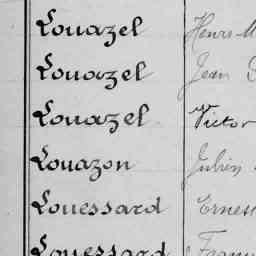 Louazel Henri M
Louazel Jean
Louazel Victor
Louazon Julien
Louessard Ernest
Louessard Franç